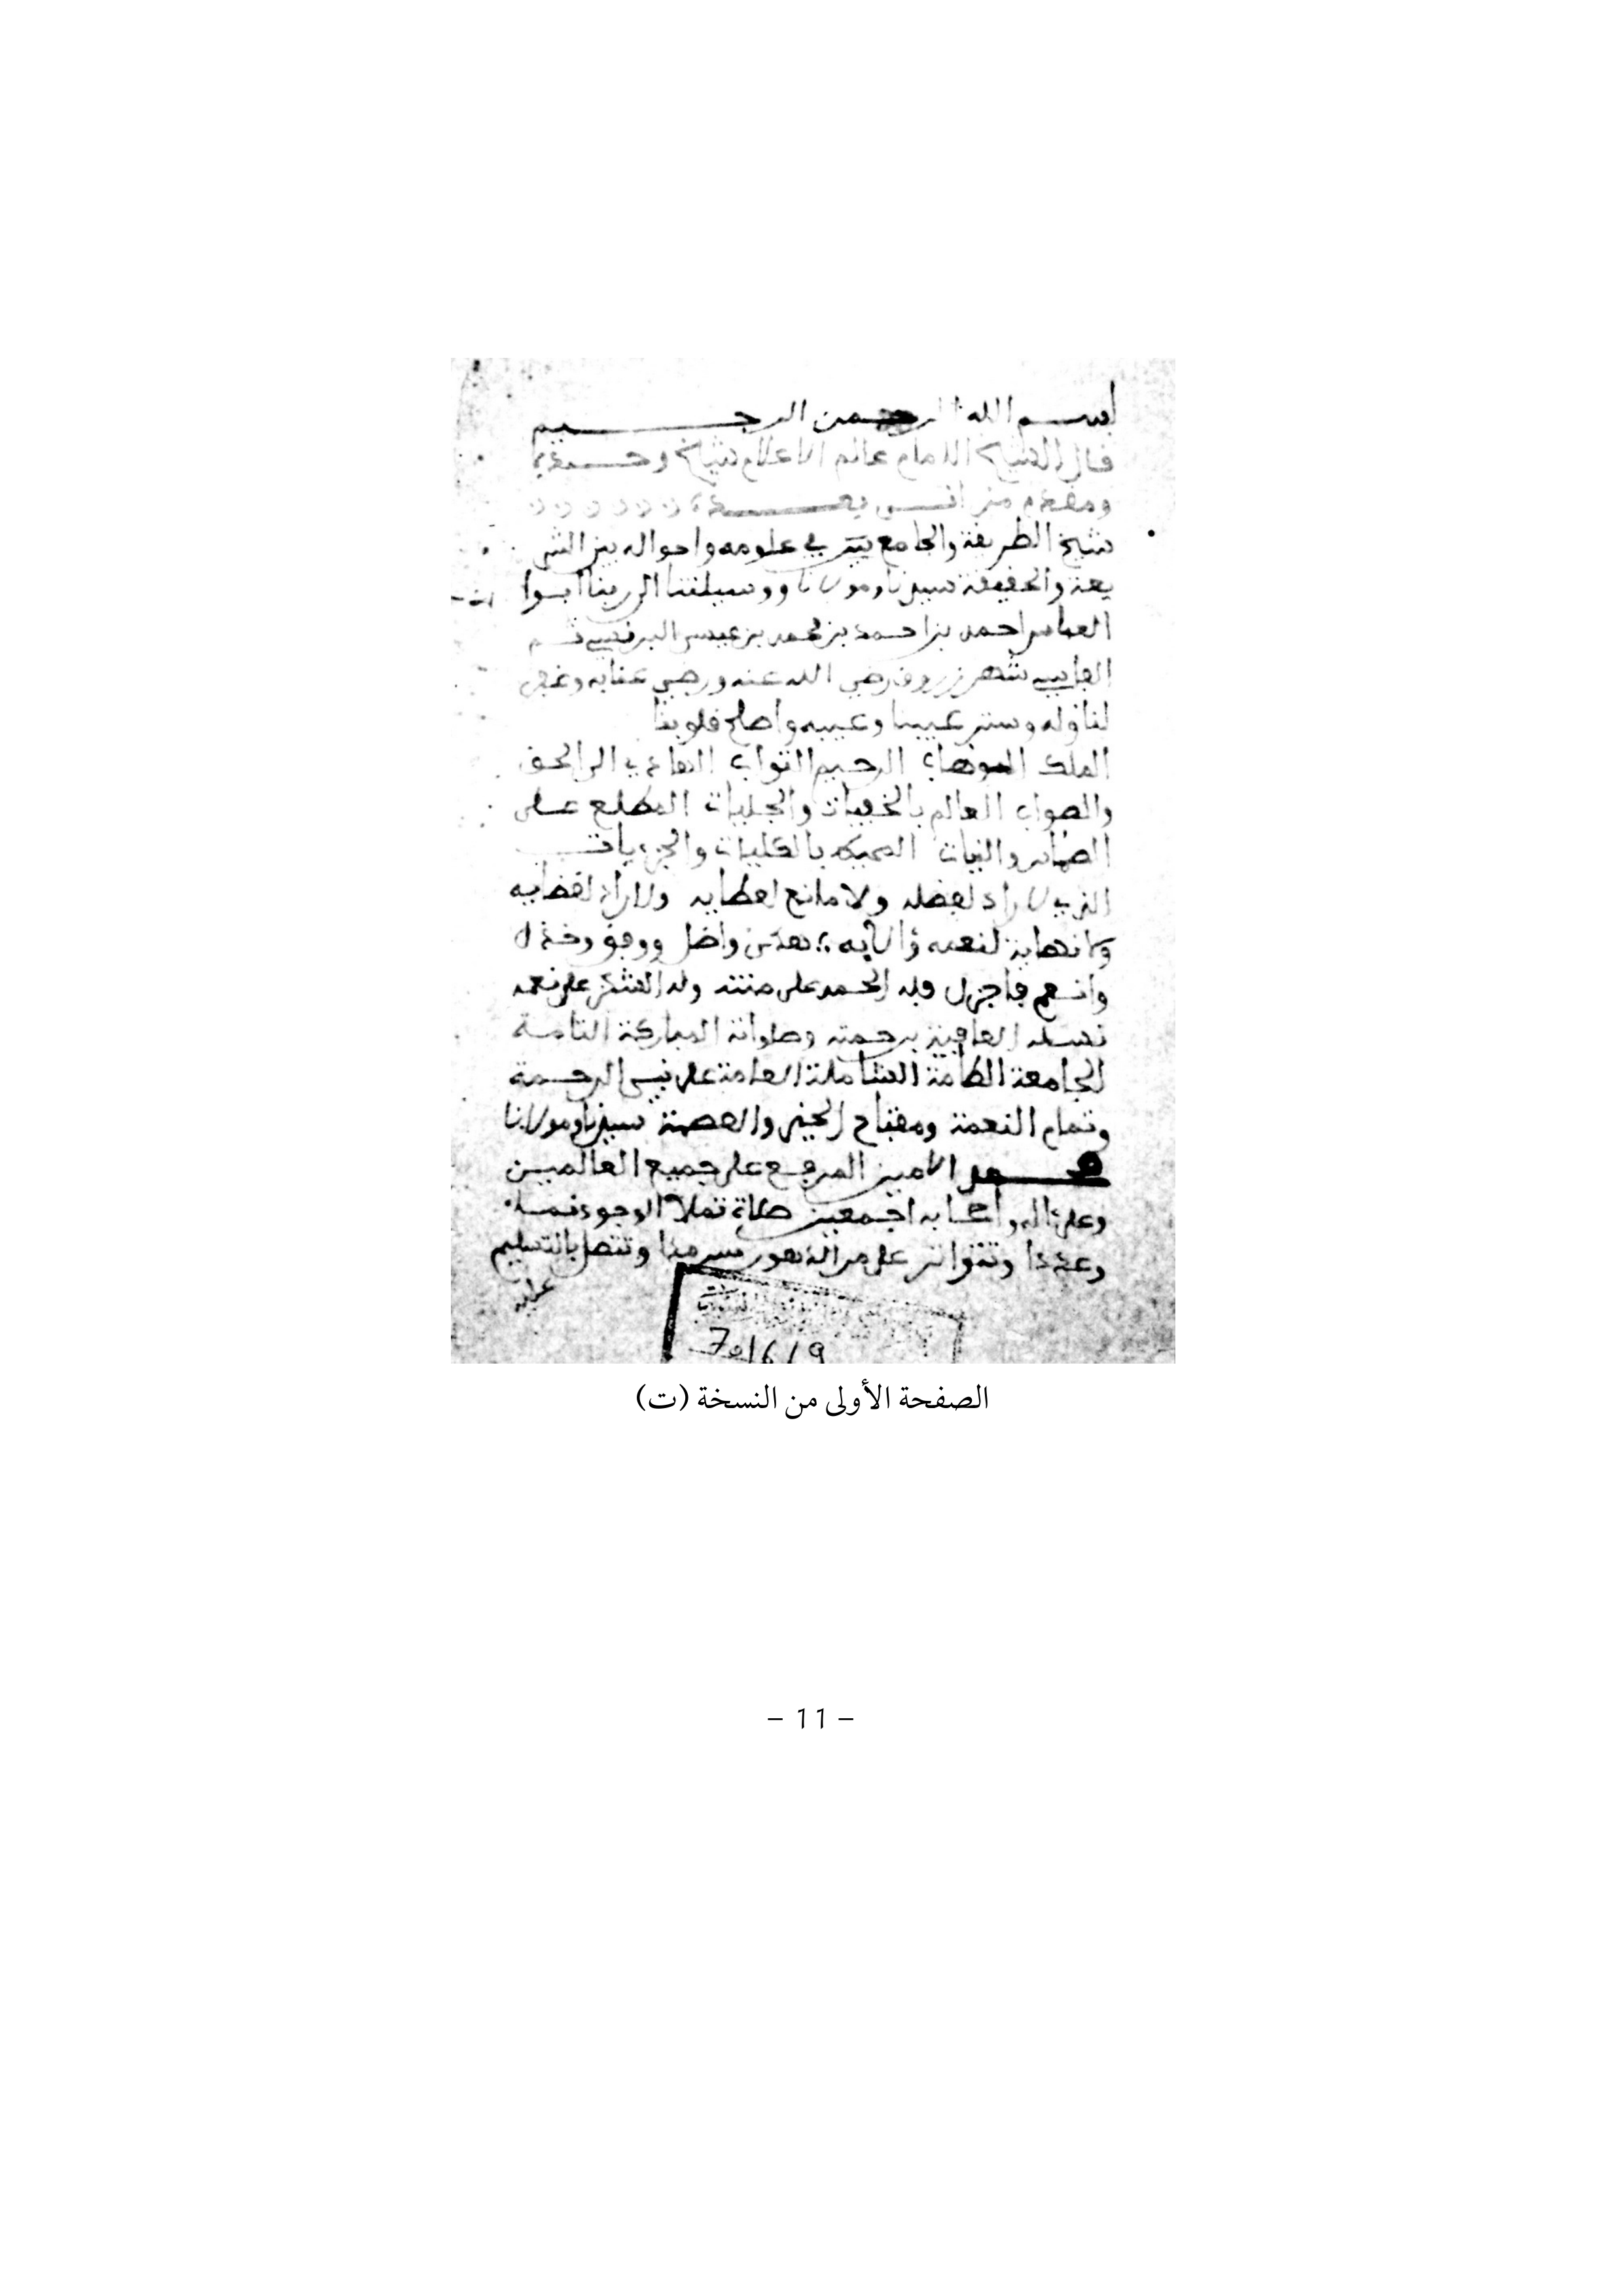 بسم الله الرحمن الرحيم
قال الشيخ الامام عالم الاعلام شيخ وحده
ومقدم من اتى بعده
شيخ الطريقة والجامع في علومه واحواله بين الشر
يعة والحقيقة سيدنا ومولانا ووسيلتنا الى ربنا ابوا
العباس احمد بن احمد بن محمد بن عيسى البرنسي ثم
الفاسي شهر زروق رضي الله عنه ورضي عنا به وغفر
لنا وله وستر عيبنا وعيبه واصلح قلوبنا
الملك الوهاب الرحيم التواب الهادي الى الحق
والصواب العالم بالخفيات والجليات المطلع على
الضماير والنيات المحيط بالكليات والجزييات
الذي لا راد لفضله ولا مانع لعطايه ولا راد لقضايه
ولا نهاية لنعمه وءالايه هدى واضل ووفق وخذل
وانعم فاجزل فله الحمد على مننه وله الشكر على نعمه
نسله العافية برحمته وصلواته المباركة التامة
الجامعة الطامة الشاملة العامة على نبي الرحمة
وتمام النعمة ومفتاح الخير والعصمة سيدنا ومولانا
محمد الامين المرفع على جميع العالمين
وعلى ءاله واصحابه اجمعين صلاة تملا الوجود
وعددا وتتواتر على مر الدهور سرمدا وتتصل بالتسليم
عليه
الصفحة الأولى من النسخة (ت)
– 11 –